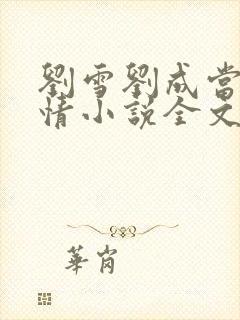 劉雪劉成當
情小說全文
華崗